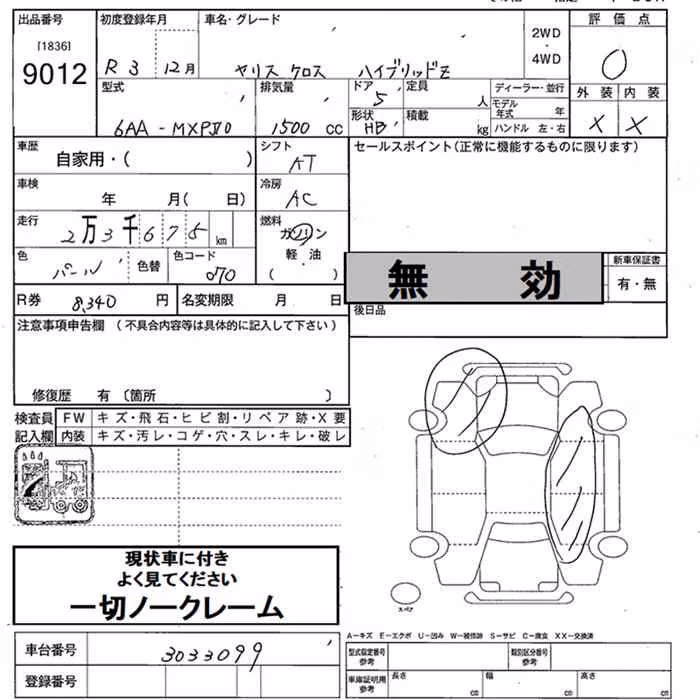 出品番号
[1836]
9012
初度登録年月
R 3 12月
車名・グレード
ヤリス クロス ハイブリッドZ
2WD
・
4WD
評価点
0
型式
6AA-
排気量
1500 CC
ドア
5
形状
HB
定員
人
積載
kg
ディーラー・並行
モデル年式 年
ハンドル 左・右
外装 内装
X X
車歴
自家用・( )
シフト
AT
セールスポイント(正常に機能するものに限ります)
車検
年 月( 日)
冷房
AC
走行
2万3千675km
燃料
ガソリン
・
軽油
( )
色
パール
色替
色コード
070
無 効
新車保証書
有・無
R券 8,340 円
名変期限 月 日
後日品
注意事項申告欄 (不具合内容等は具体的に記入して下さい)
修復歴 有 〔箇所 〕
検査員
記入欄
FW キズ・飛石・ヒビ割・リペア跡・X要
内装 キズ・汚レ・コゲ・穴・スレ・キレ・破レ
現状車に付き
よく見てください
一切ノークレーム
スペア
車台番号 3033099
登録番号
A-キズ E-エクボ U-凹み W-補修跡 S-サビ C-腐食 XX-交換済
型式指定番号
参考
類別区分番号
参考
車庫証明用
参考
長さ cm
幅 cm
高さ cm